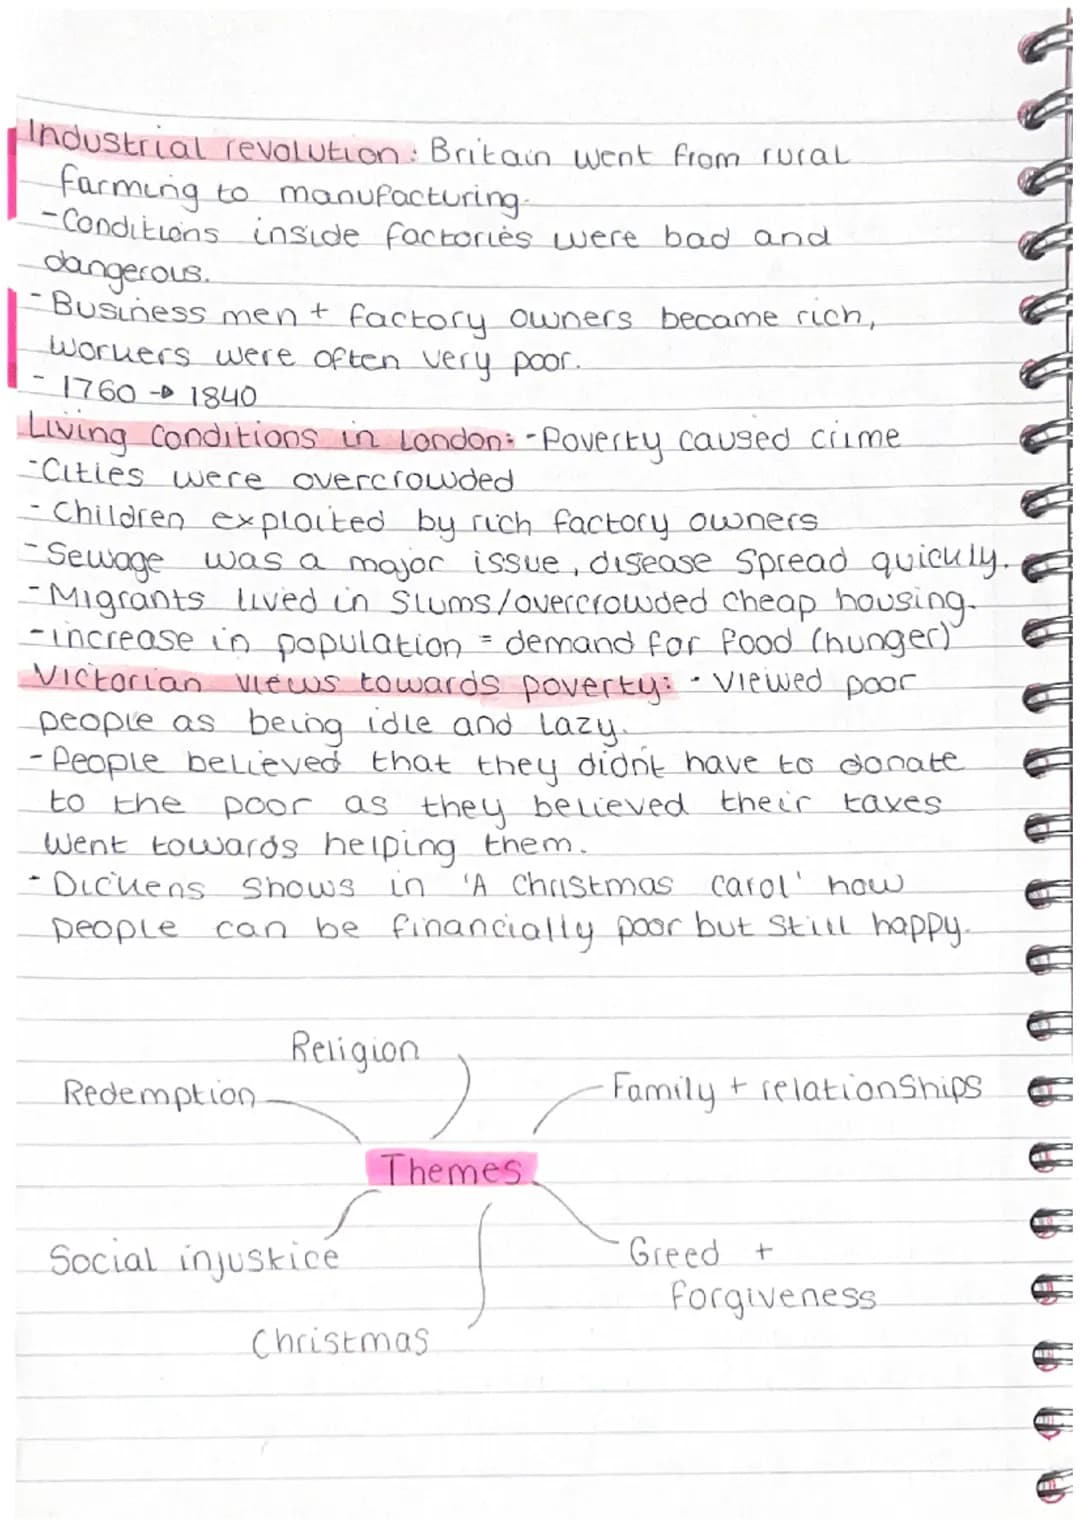 Industrial revolution: Britain went from rural
farming to manufacturing.
- Conditions inside factories were bad and
dangerous.
- Business men + factory owners became rich,
workers were often very poor.
- 1760 → 1840
Living conditions in London: - Poverty caused crime
- Cities were overcrowded
- Children exploited by rich factory owners
- Sewage was a major issue, disease spread quickly.
- Migrants lived in slums/overcrowded cheap housing.
- increase in population = demand for food (hunger)
Victorian views towards poverty: - viewed poor
people as being idle and lazy.
- People believed that they didn't have to donate
to the poor as they believed their taxes
went towards helping them.
- Dickens shows in 'A Christmas Carol' how
people can be financially poor but still happy.
Religion
Redemption
Family + relationships
Themes
Social injustice
Greed +
forgiveness
Christmas